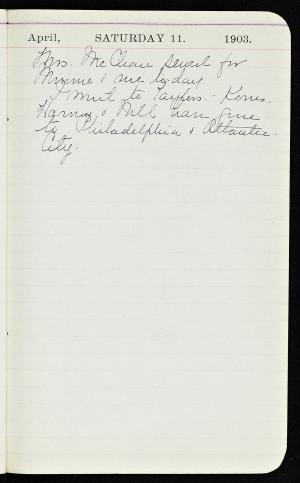 April, SATURDAY 11. 1903.
Mrs. McCleave sewed for
Minnie & me to-day.
I went to Taylors. -
Harney & Will have gone
to Philadelphia & Atlantic
City.